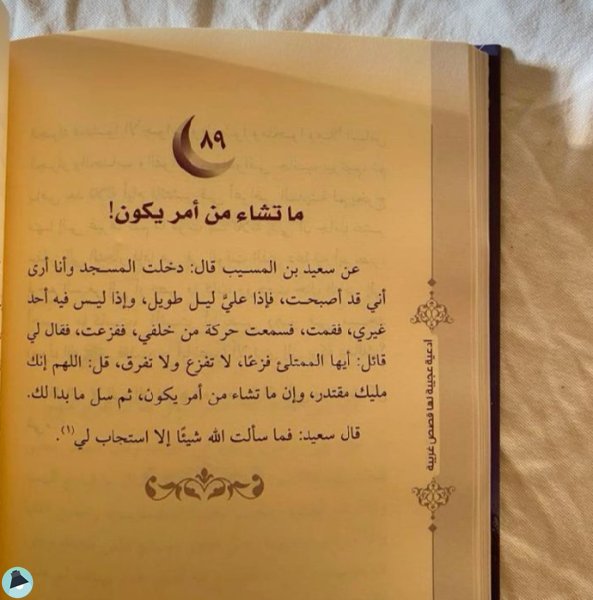 ٨٩
ما تشاء من أمر يكون!
عن سعيد بن المسيب قال: دخلت المسجد وأنا أرى
أني قد أصبحت، فإذا عليَّ ليل طويل، وإذا ليس فيه أحد
غيري، فقمت، فسمعت حركة من خلفي، ففزعت، فقال لي
قائل: أيها الممتلئ فزعًا، لا تفزع ولا تفرق، قل: اللهم إنك
مليك مقتدر، وإن ما تشاء من أمر يكون، ثم سل ما بدا لك.
قال سعيد: فما سألت الله شيئًا إلا استجاب لي(١).
أدعية عجيبة لها قصص غريبة